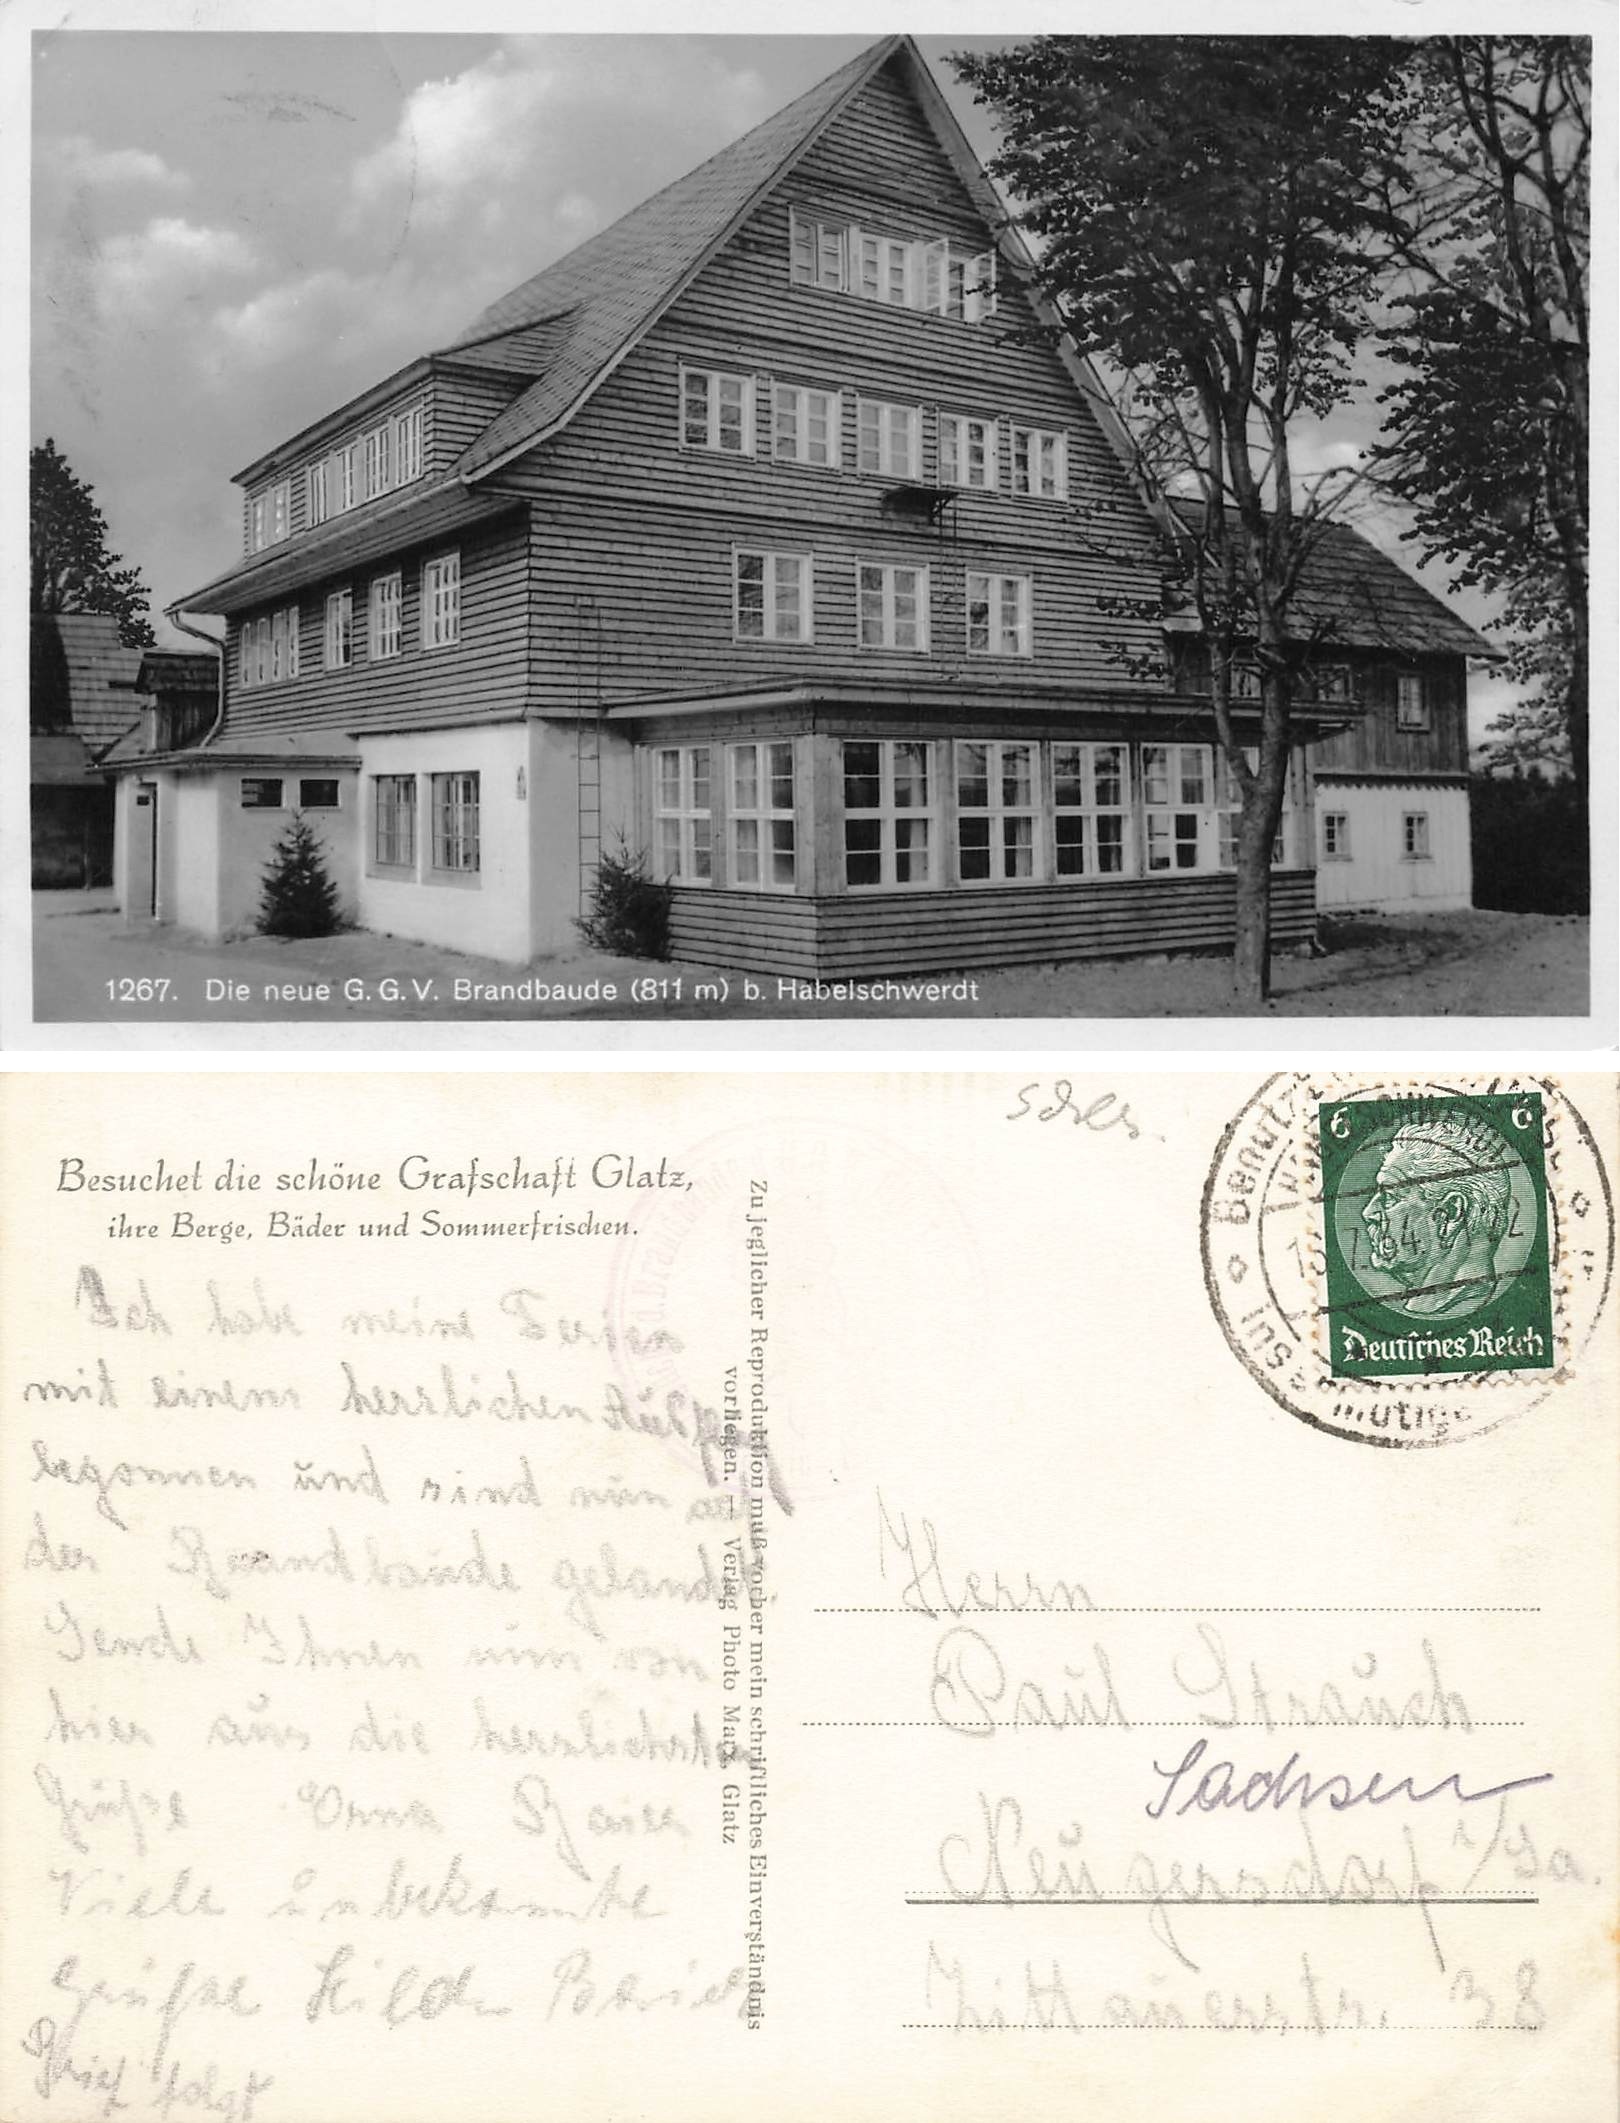 1267. Die neue G.G.V. Brandbaude (811 m) b. Habelschwerdt
Schles.
Besuchet die schöne Grafschaft Glatz,
ihre Berge, Bäder und Sommerfrischen.
Ich habe meine Ferien
mit einem herrlichen Ausflug
begonnen und sind nun auf
der Brandbaude gelandet.
Sende Ihnen nun von
hier aus die herzlichsten
Grüße Erna
Viele unbekannte
Grüße Hilde
Brief folgt
Zu jeglicher Reproduktion muß vorher mein schriftliches Einverständnis
vorliegen. — Verlag Photo Marx, Glatz
Benutzt
6 6
Deutsches Reich
Herrn
Paul Strauch
Sachsen
Neugersdorf i/Sa.
Zittauerstr. 38